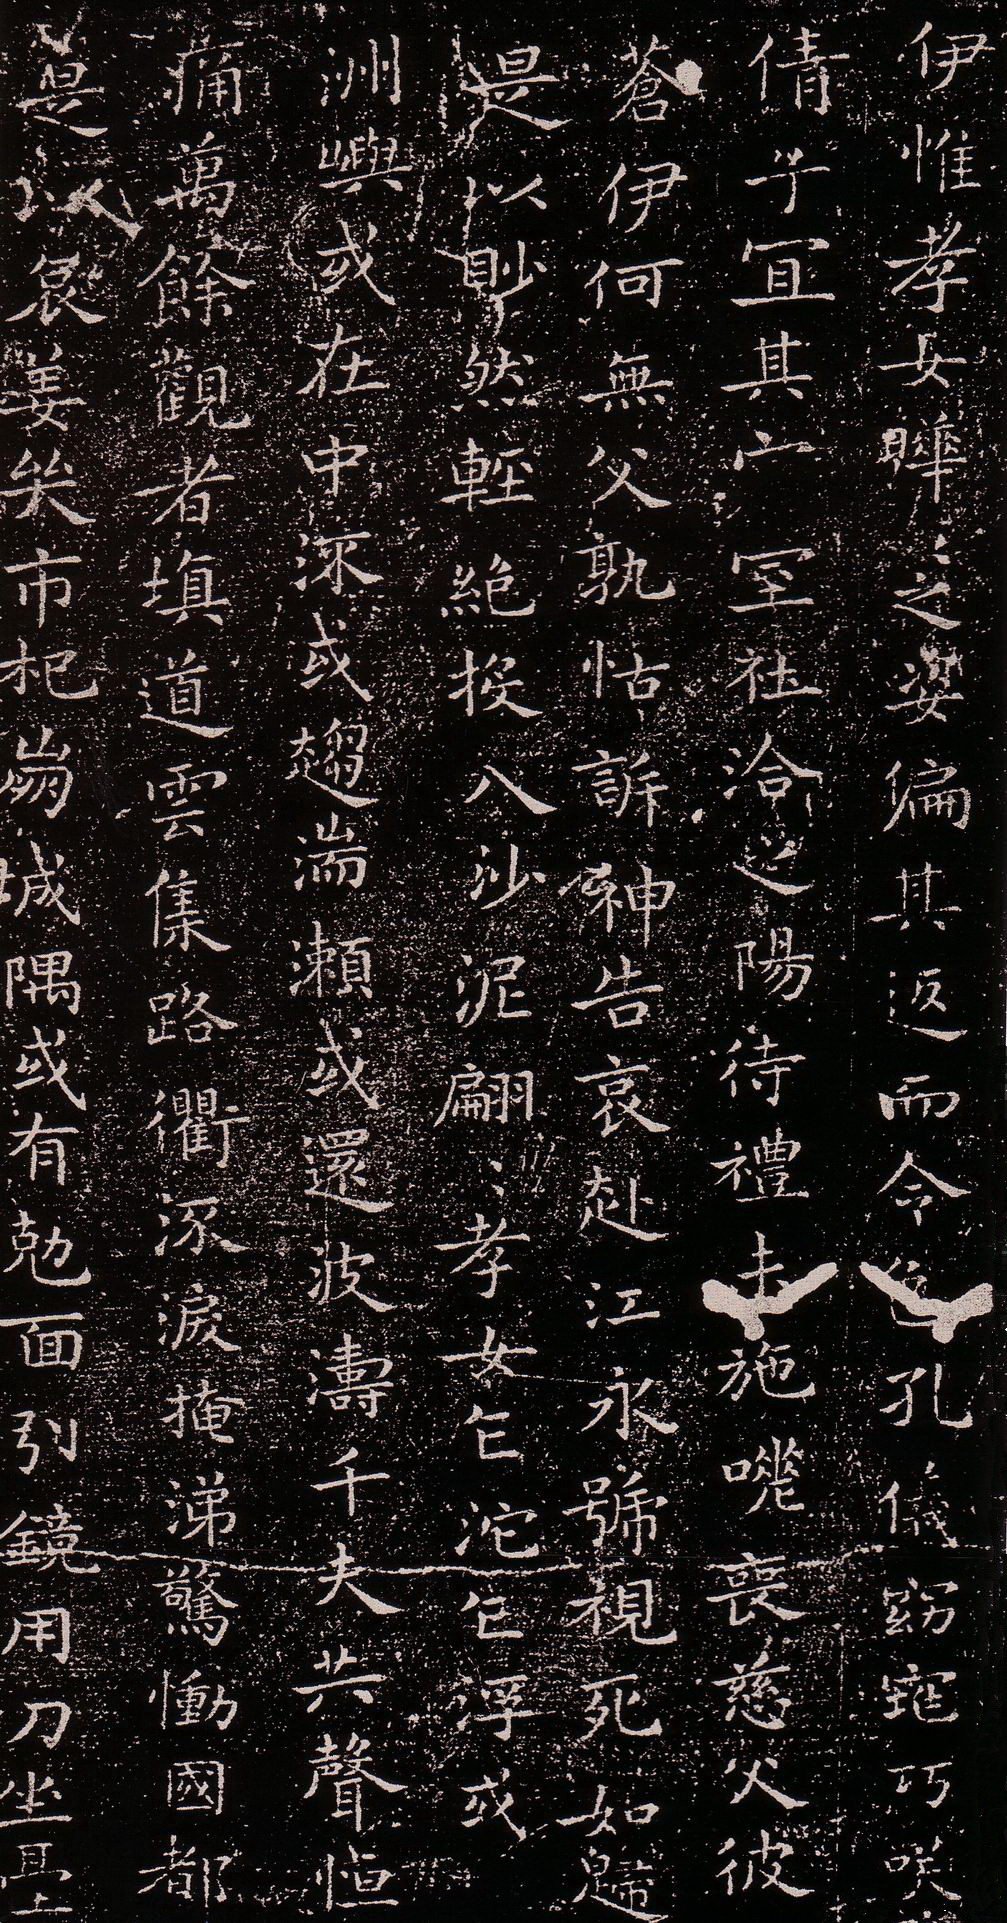 伊惟孝女曄〻之姿偏其返而令色孔儀窈窕巧咲
倩兮宜其家室在洽之陽待禮未施嗟喪慈父彼
蒼伊何無父孰怙訴神告哀赴江永號視死如歸
是以眇然輕絕投入沙泥翩〻孝女乍沉乍浮或
洲嶼或在中流或趨湍瀨或還波濤千夫失聲悼
痛萬餘觀者填道雲集路衢流淚掩涕驚慟國都
是以哀姜哭市杞崩城隅或有尅面引鏡用刀坐臺